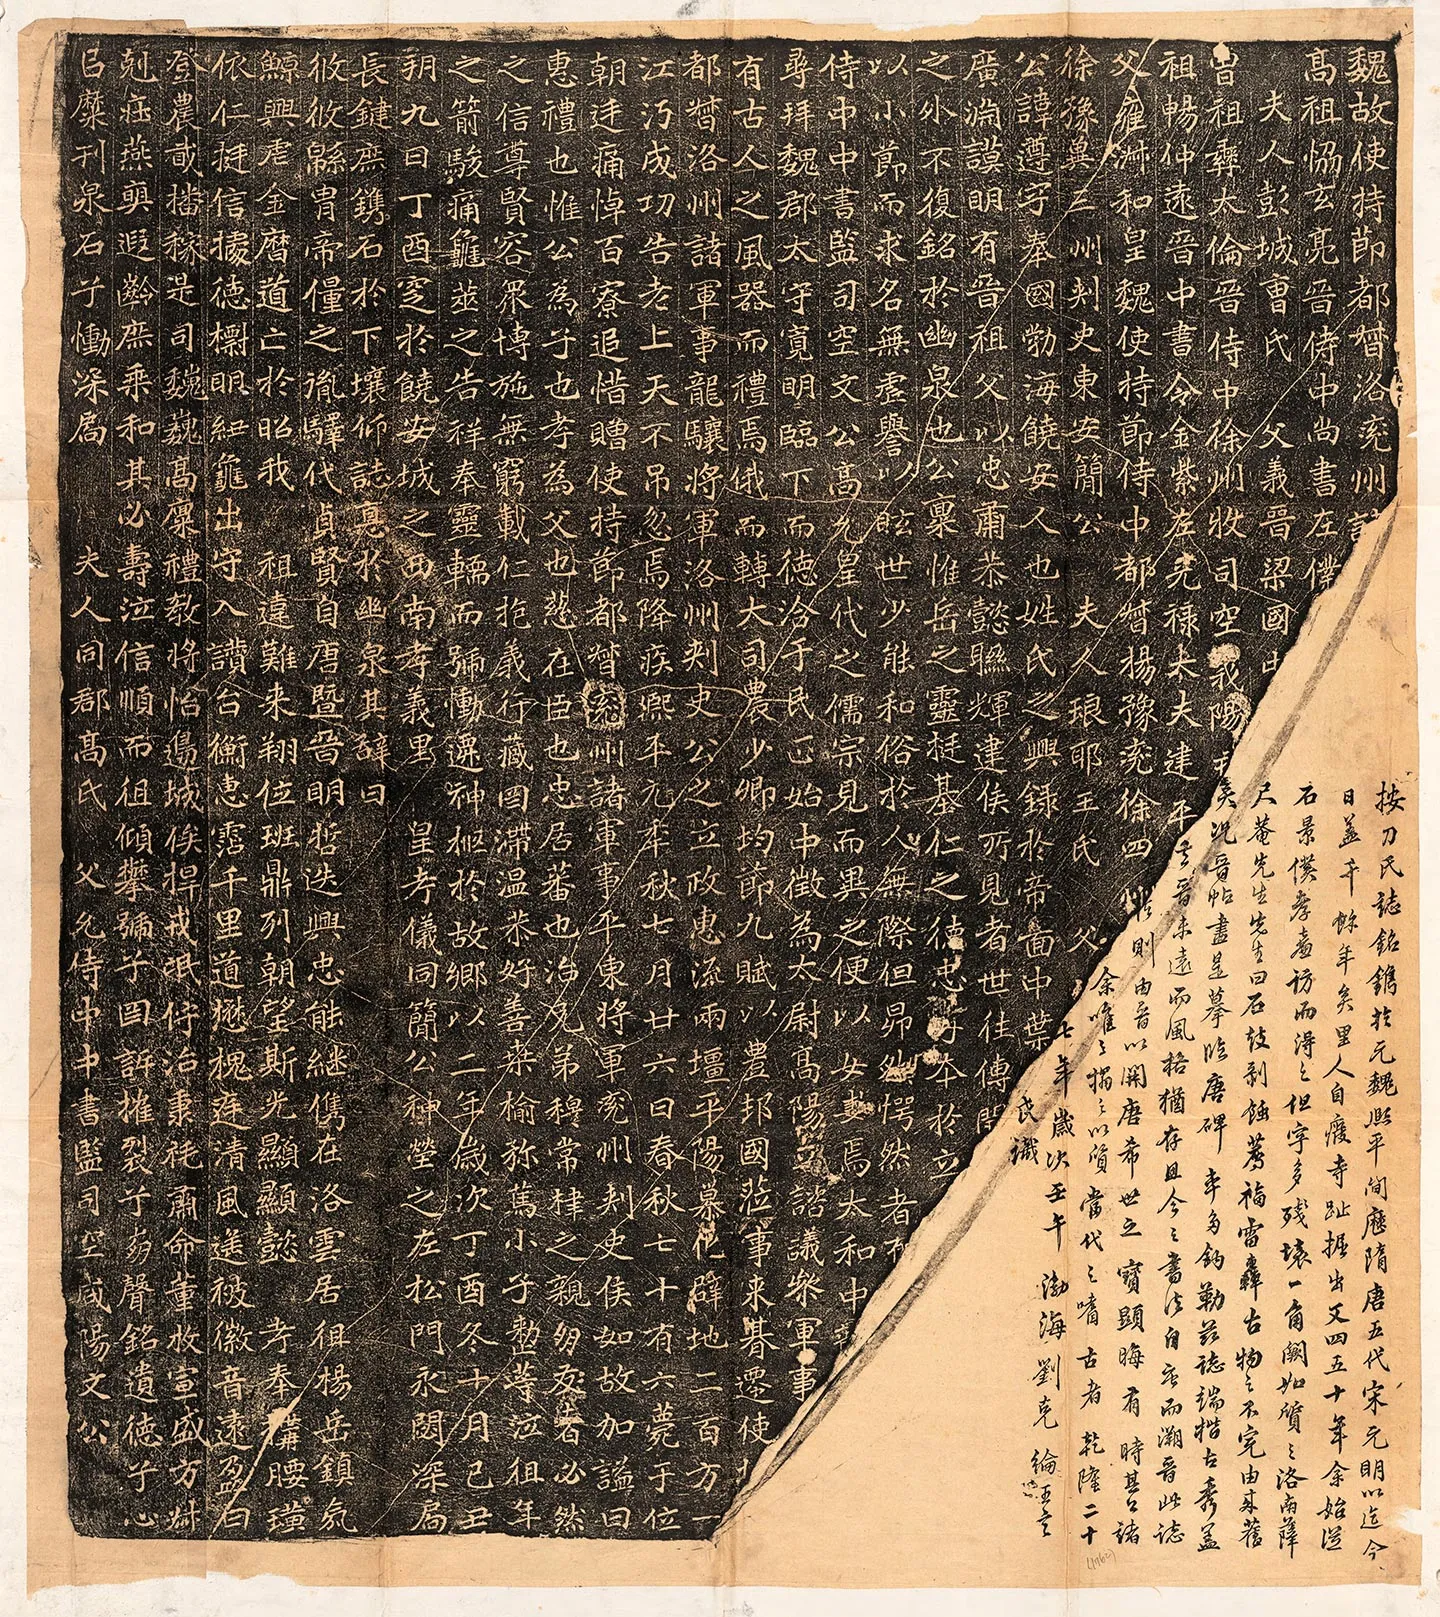 魏故使持節都督洛兗州諸
高祖協玄亮晉侍中尚書左僕
夫人彭城曹氏 父義晉梁國中
曾祖彝太倫晉侍中徐州牧司空義陽
祖暢仲遠晉中書令金紫左光祿大夫建平
父雍淑和皇魏使持節侍中都督揚豫兗徐四
徐豫冀三州刾史東安簡公 夫人琅耶王氏 父
公諱遵字奉國勃海饒安人也姓氏之興録於帝啚中葉
廣淵謨明有晉祖父以忠肅恭懿聮輝建侯所見者世往傳聞
之外不復銘於幽泉也公稟惟岳之靈挺基仁之德忠孝本於立
以小節而求名無虛譽以眩世少能和俗於人無際但昂然愕然者有
侍中中書監司空文公高允皇代之儒宗見而異之便以女妻焉太和中
尋拜魏郡太守寬明臨下而德洽于民正始中徵為太尉高陽王諮議叅軍事
有古人之風器而禮焉俄而轉大司農少卿均節九賦以豊邦國蒞事未朞遷使
都督洛州諸軍事龍驤將軍洛州刾史公之立政惠流兩壃平陽慕化辟地二百方一
江沔成功告老上天不弔忽焉降疾熙平元年秋七月廿六日春秋七十有六薨于位
朝廷痛悼百寮追惜贈使持節都督兗州諸軍事平東將軍兗州刾史侯如故加謚曰
惠禮也惟公為子也孝為父也慈在臣也忠居蕃也治兄弟穆常棣之親朋友著必然
之信尊賢容衆博施無窮載仁抱義行藏罔滯温恭好善桒榆弥篤小子整等泣徂年
之箭駿痛龜筮之告祥奉靈輀而號慟遷神柩於故鄉以二年歲次丁酉冬十月己丑
朔九日丁酉窆於饒安城之西南孝義里 皇考儀同簡公神塋之左松門永閟深扃
長鍵庶鐫石於下壤仰誌髙於幽泉其辭曰
攸攸緜胄帝僵之胤驛代貞賢自唐暨晉明哲迭興忠能継儁在洛雲居徂楊岳鎮氛
鯨興虐金曆道亡於昭我 祖違難来翔位班鼎列朝望斯光顯顯懿 考奉 腰璜
依仁挺信據德摽明紐龜出守入讚台衡惠霑千里道懋槐庭清風遐被徽音遠盈曰
登農戢播稼是司巍巍髙廩禮敎將怡 城俟捍戎祗佇治秉旄肅命董牧宣威方難
剋庭燕奭遐齡庶乘和其必壽泣信順而徂傾攀號子罔訴摧裂子崩聲銘遺德子心
㠯糜刊泉石子慟深扃 夫人同郡高氏 父允侍中中書監司空咸陽文公
按刁氏誌銘鐫於元魏熙平間歷隋唐五代宋元明以迄今
日蓋千餘年矣里人自廢寺趾掘出又四五十年余始從
石景僕孝廉訪而得之但字多殘壞一角闕如質之洛南薩
尺菴先生先生曰石鼓剝蝕薦福雷轟古物之不完由来舊
矣況晉帖盡是摹臨唐碑率多鈎勒茲誌端楷古秀蓋
去晉未遠而風格猶存且今之書法自唐而溯晉此誌
則由晉以開唐希世之寶顯晦有時其公諸
余唯唯搨之以質當代之嗜古者 乾隆二十
七年歲次壬午 渤海劉克綸王言
氏識
(1762)